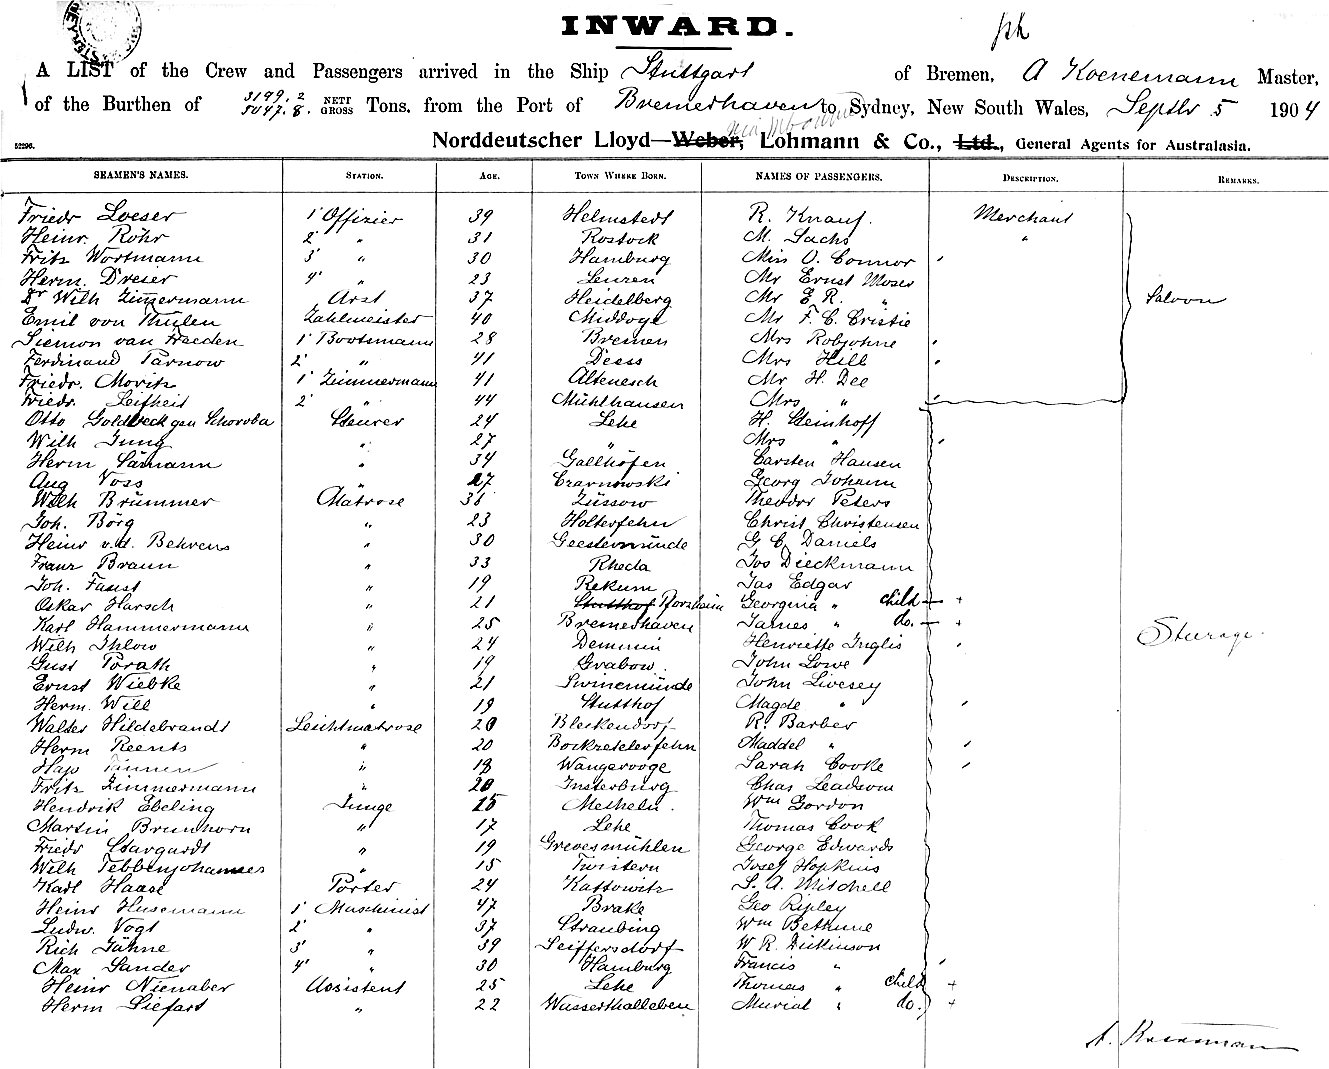 INWARD.
A LIST of the Crew and Passengers arrived in the Ship Stuttgart of Bremen, A Koenemann Master,
of the Burthen of 3199.2 NETT 5047.8. GROSS Tons. from the Port of Bremerhaven to Sydney, New South Wales, Septbr 5 1904
Norddeutscher Lloyd—Weber, Lohmann & Co., Ltd., General Agents for Australasia.
52296.
SEAMEN'S NAMES. STATION. AGE. TOWN WHERE BORN. NAMES OF PASSENGERS. DESCRIPTION. REMARKS.
Friedr Loeser 1' Offizier 39 Helmstedt R. Knauf. Merchant
Heinr. Röhr 2' " 31 Rostock M. Sachs "
Fritz Wortmann 3' " 30 Hamburg Miss O. Connor
Herm. Dreier 4' " 23 Lenzen Mr Ernst Moser
Dr Wilh Zimmermann Arzt 37 Heidelberg Mr E R. " Saloon
Emil von Thülen Zahlmeister 40 Middoge Mr F. C. Cristie
Siemon van Freeden 1' Bootsmann 28 Bremen Mrs Robjohne
Ferdinand Parnow 2' " 41 Deess Mrs Hill
Friedr. Moritz 1' Zimmermann 41 Altenesch Mr H. Dee
Friedr. Leifheit 2' " 44 Mühlhausen Mrs "
Otto Goldbeck gen Schoroba Steurer 24 Lehe H. Steinhoff
Wilh Jung " 27 " Mrs "
Herm Sämann " 34 Gallhöfen Carsten Hansen
Aug Voss " 27 Czarnowski Georg Johann
Wilh Brümmer Matrose 38 Züssow Theodor Peters
Joh. Börg " 23 Holterfehn Christ Christensen
Heinr v.d. Behrens " 30 Geestemünde G C Daniels
Franz Braun " 33 Rheda Jos Dieckmann
Joh. Faust " 19 Rekum Jas Edgar
Oskar Harsch " 21 Stutthof Pforzheim Georgina " child
Karl Hammermann " 25 Bremerhaven James " do.
Wilh Ihlow " 24 Demmin Henriette Inglis Steerage.
Gust Porath " 19 Grabow. John Lowe
Ernst Wiebke " 21 Swinemünde John Livesey
Herm. Will " 19 Stutthof Magde "
Walter Hildebrandt Leichtmatrose 20 Bleckendorf R. Barber
Herm Reents " 20 Bockzetelerfehn Maddel "
Hajo Tinnen " 18 Wangerooge Sarah Cooke
Fritz Zimmermann " 20 Insterburg Chas Leadsom
Hendrik Ebeling Junge 15 Mecheln. Wm Gordon
Martin Brunhorn " 17 Lehe Thomas Cook
Friedr Stargardt " 19 Grevesmühlen George Edwards
Wilh Tebbenjohannes " 15 Twistern Josef Hopkins
Karl Haase Porter 24 Kattowitz S. A. Mitchell
Heinr Husemann 1' Maschinist 47 Brake Geo Ripley
Ludw. Vogt 2' " 37 Straubing Wm Bethune
Rich Jähne 3' " 39 Seiffersdorf W R. Dickinson
Max Sander 4' " 30 Hamburg Francis "
Heinr Nienaber Assistent 25 Lehe Thomas " child
Herm Siefart " 22 Wasserthalleben Murial " do.
A. Koenemann